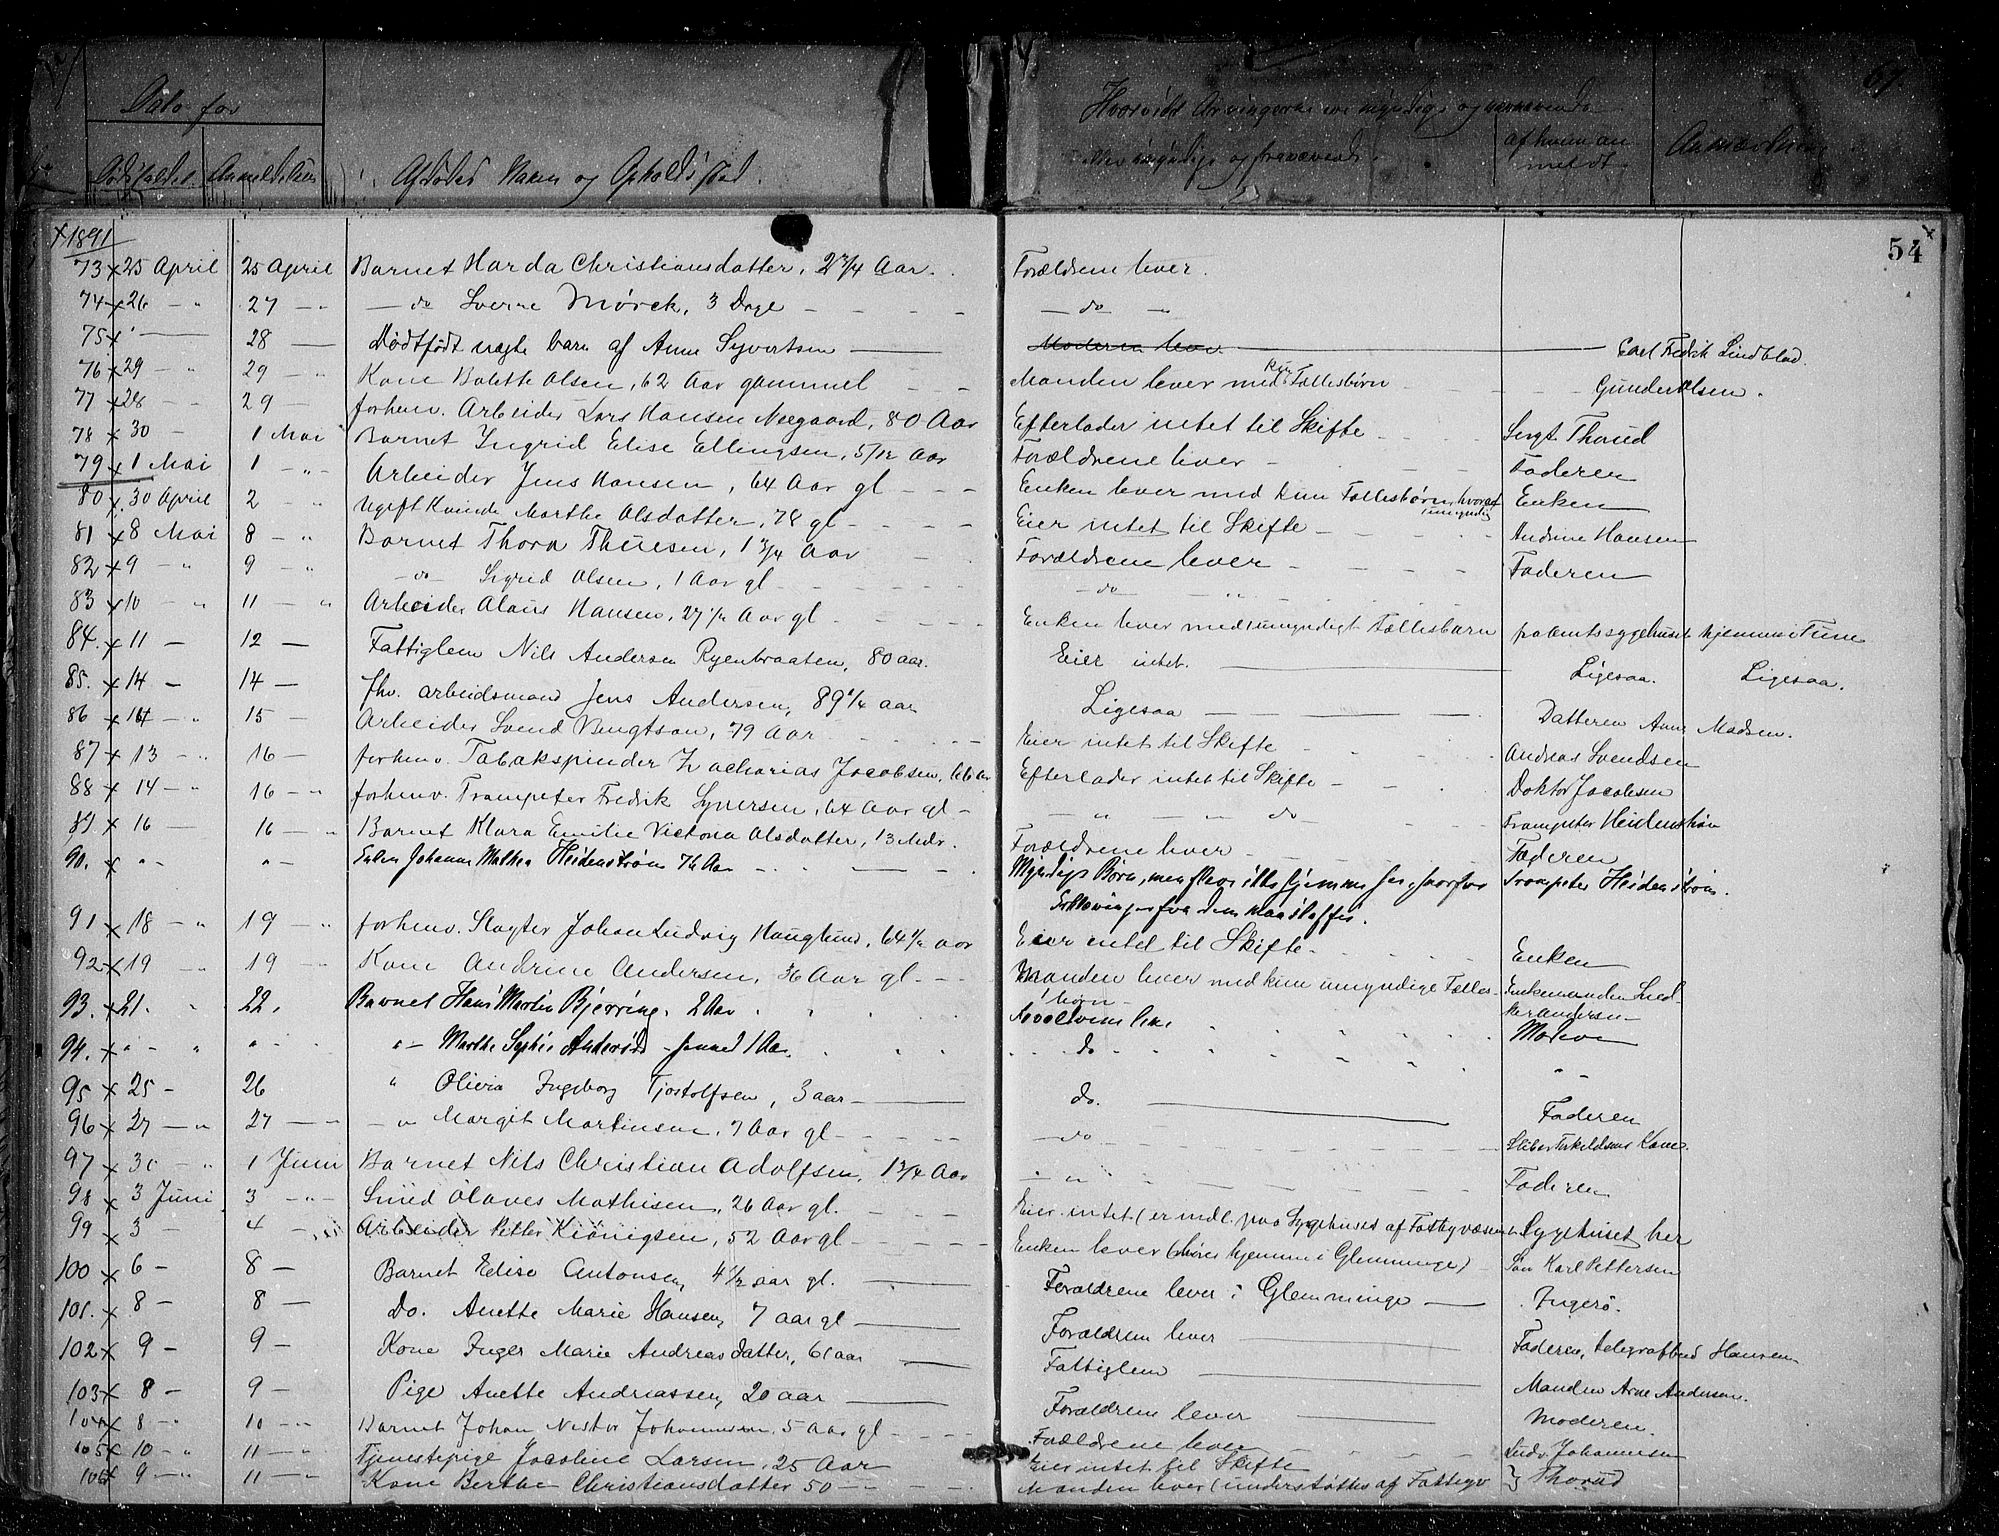 Dato for
Dødsfaldet. Anmeldelsen
Afdødes Navn og Opholdssted.
Hvorvidt Arvingerne ere myndige og nærværende
eller umyndige og fraværende.
af hvem anmeldt
Anmærkning
67.
54
1891
73 25 April 25 April Barnet Harda Christiansdatter, 2 3/4 Aar. Forældrene lever.
74 26 - " 27 - " - do Sverre Mørck, 3 Dage - - - - do "
75 " 28 Dødfødt uægte barn af Anne Syvertsen Moderen lever. Carl Fredrik Lindblad.
76 29 - " 29 " Kone Bolette Olsen, 62 Aar gammel - - Manden lever med kun Fællesbørn - - Gunder Olsen.
77 28 - " 29 - forhenv. Arbeider Lars Hansen Neegaard, 80 Aar Efterlader intet til Skifte - - - Sergt. Thorud
78 30 - 1 Mai Barnet Ingrid Elise Ellingsen, 5/12 Aar Forældrene lever - - - Faderen
79 1 Mai 1 - " - Arbeider Jens Hansen, 64 Aar gl - - - Enken lever med kun Fællesbørn, hvoraf 1 umyndig Enken
80 30 April 2 " Ugift Kvinde Marthe Olsdatter, 78 gl - - - - Eier intet til Skifte - - - - Andrine Hansen
81 8 Mai 8 - " Barnet Thora Thuesen, 1 3/4 Aar - Forældrene lever - - - - Faderen
82 9 - " 9 - " - do - Sigrid Olsen, 1 Aar gl - - - - - do - "
83 10 - " 11 - " Arbeider Olaus Hansen, 27 1/2 Aar gl - - - Enken lever med 1 umyndigt Fællesbarn paa Amtssygehuset hjemme i Tune
84. 11 - 12 - Fattiglem Nils Andersen Ryenbraaten, 80 aar. Eier intet. Ligesaa. Ligesaa.
85. 14 - 14 - fhv. arbeidsmand Jens Andersen, 89 1/4 aar Ligesaa Datteren Anne Madsen.
86 14 - " 15 - Arbeider Svend Bengtson, 79 Aar - - - Eier intet til Skifte - - - Andreas Svendsen
87 13 - " 16 - forhenv. Tabakspinder Zacharias Jacobsen, 66 Aar Efterlader intet til Skifte - - - Doktor Jacobsen
88 14 - " 16 - " forhenv. Trompeter Fredrik Syversen, 64 Aar gl - - " - " do - Trompeter Heidenstrøm
89 16 - 16 - " Barnet Klara Emilie Victoria Olsdatter, 13 Mdr. Forældrene lever - Faderen
90. " " " - Enken Johanne Malkea Heidenstrøm 76 Aar - - Myndige Børn, men Trompeter Heidenstrøm.
91 18 - " 19 - " forhenv. Slagter Johan Ludvig Hauglund, 64 1/2 Aar Eier intet til Skifte - Enken
92 19 - " 19 - " Kone Andrine Andersen, 36 Aar gl. - - Manden lever med kun umyndige Fællesbørn - Enkemanden
93. 21. " 22. Barnet Hans Martin Bjerring. 2 Aar Forældrene lever Moderen
94. " - " " " - Marthe Sophie 1 Aar. do " "
95 25 - 26 " Olivia Ingeborg Tjostolfsen, 3 aar do. Faderen
96 27 - " 27 - " - " Margit Martinsen, 7 Aar gl - - - do - - - Kone.
97 30 - " 1 Juni Barnet Nils Christian Adolfsen, 1 3/4 Aar " - - - Faderen
98 3 Juni 3 - " - Smed Olaves Mathisen, 26 Aar gl. - - - Eier intet (er indl. paa Sygehuset af Fattigvæsenet Sygehuset her
99 3 - 4 - " Arbeider Petter Kiønigsen, 52 Aar gl - - - - Enken lever (høre hjemme i Glemminge) - Søn Karl Pettersen
100 6 - 8 - Barnet Edise Antonsen, 4 1/2 aar gl. Forældrene lever i Glemminge Ingerø.
101. 8 - 8 - Do. Anette Marie Hansen, 7 aar gl Forældrene lever Faderen, telegrafbud Hansen
102 9 - 9 - Kone Inger Marie Andreasdatter, 61 aar Fattiglem Manden Arne Andersen.
103 8 - 9 - Pige Anette Andreassen, 20 aar Forældrene lever Moderen.
104 8 - " 10 - " Barnet Johan Nestor Johannesen, 5 Aar gl - - - Forældrene lever - - - Ludv. Johannesen
105 10 - " 11 - " Tjenestepige Josefine Larsen, 25 Aar Eier intet til Skifte
106 9 - " 11 - " Kone Berthe Christiansdatter 50 - - - - Manden lever (understøttes af Fattigv } Thorud